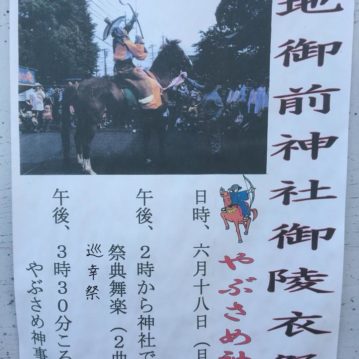 地御前神社御陵衣祭
やぶさめ神
日時、六月十八日（月
午後、２時から神社で
祭典舞楽（２曲
巡幸祭
午後、３時３０分ころ
やぶさめ神事